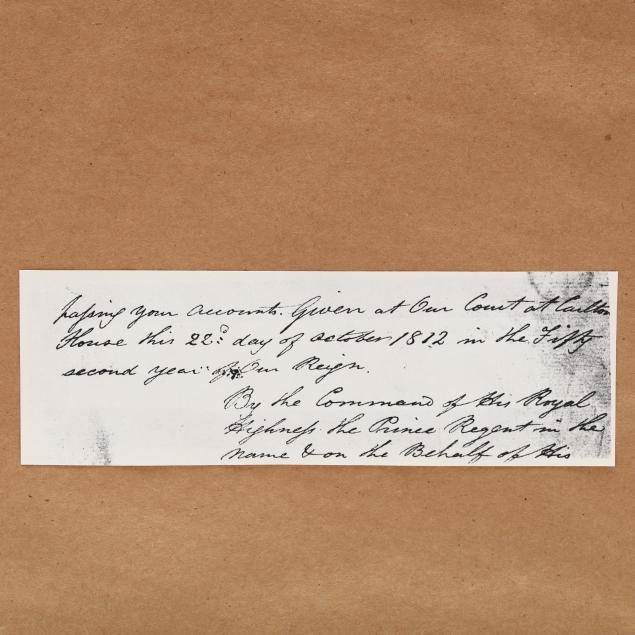 passing your accounts. Given at Our Court at Carlton
House this 22d day of October 1812 in the Fifty
second year of Our Reign.
By the Command of His Royal
Highness the Prince Regent in the
name & on the Behalf of His